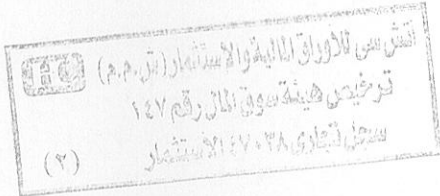 اتش سى للأوراق المالية والاستثمار (ش.م.م) HC
ترخيص هيئة سوق المال رقم ١٤٧
سجل تجارى ٤٧٠٣٨ الاستثمار
(٢)